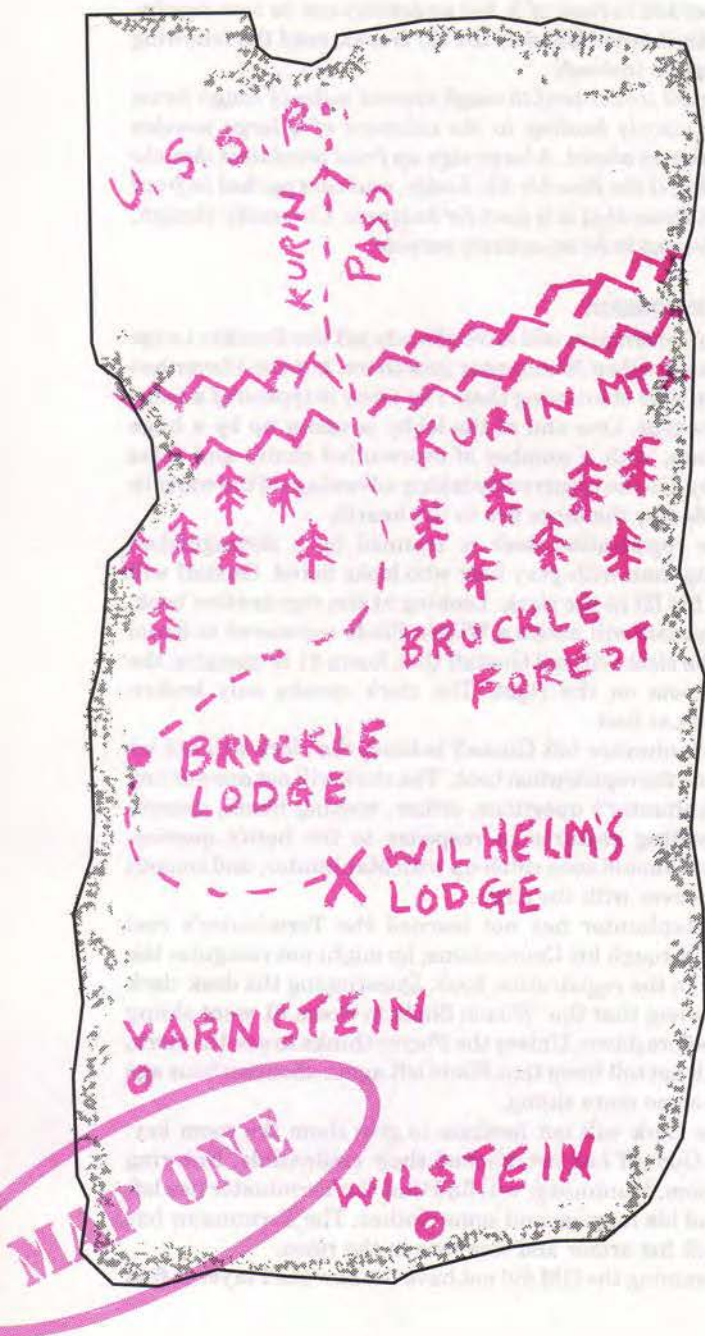 U.S.S.R.
KURIN
PASS
KURIN MTS
BRUCKLE
FOREST
BRUCKLE
LODGE
WILHELM'S
LODGE
VARNSTEIN
WILSTEIN
MAP ONE